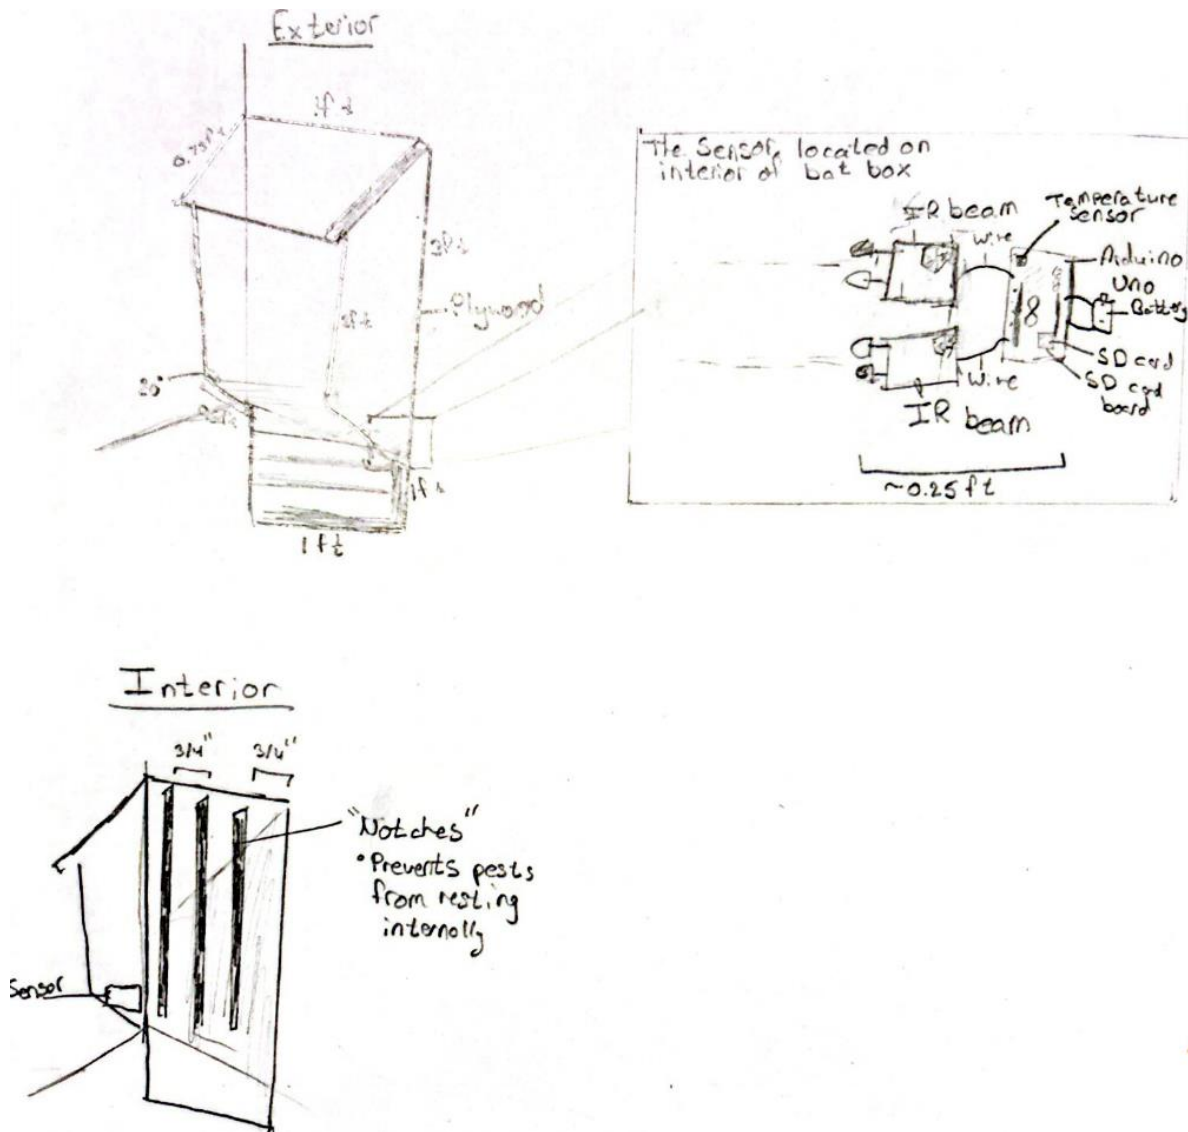 Exterior
1ft
0.75ft
Plywood
20°
1ft
1ft
The Sensor, located on
interior of bat box
IR beam
Temperature
sensor
Wire
Arduino
Uno
Battery
SD card
SD card
board
Wire
IR beam
~0.25ft
Interior
3/4" 3/4"
"Notches"
• Prevents pests
from resting
internally
Sensor